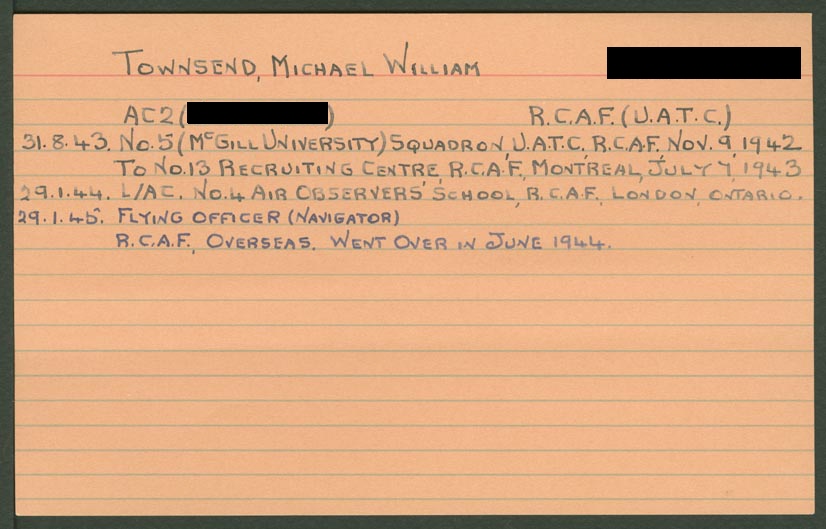 TOWNSEND, MICHAEL WILLIAM
AC2 ( ) R.C.A.F. (U.A.T.C.)
31.8.43. No. 5 (McGILL UNIVERSITY) SQUADRON, U.A.T.C. R.C.A.F. NOV. 9, 1942
TO No. 13 RECRUITING CENTRE, R.C.A.F., MONTREAL, JULY 7, 1943
29.1.44. L/AC. No. 4 AIR OBSERVERS' SCHOOL, R.C.A.F. LONDON, ONTARIO.
29.1.45. FLYING OFFICER (NAVIGATOR)
R.C.A.F., OVERSEAS. WENT OVER IN JUNE 1944.